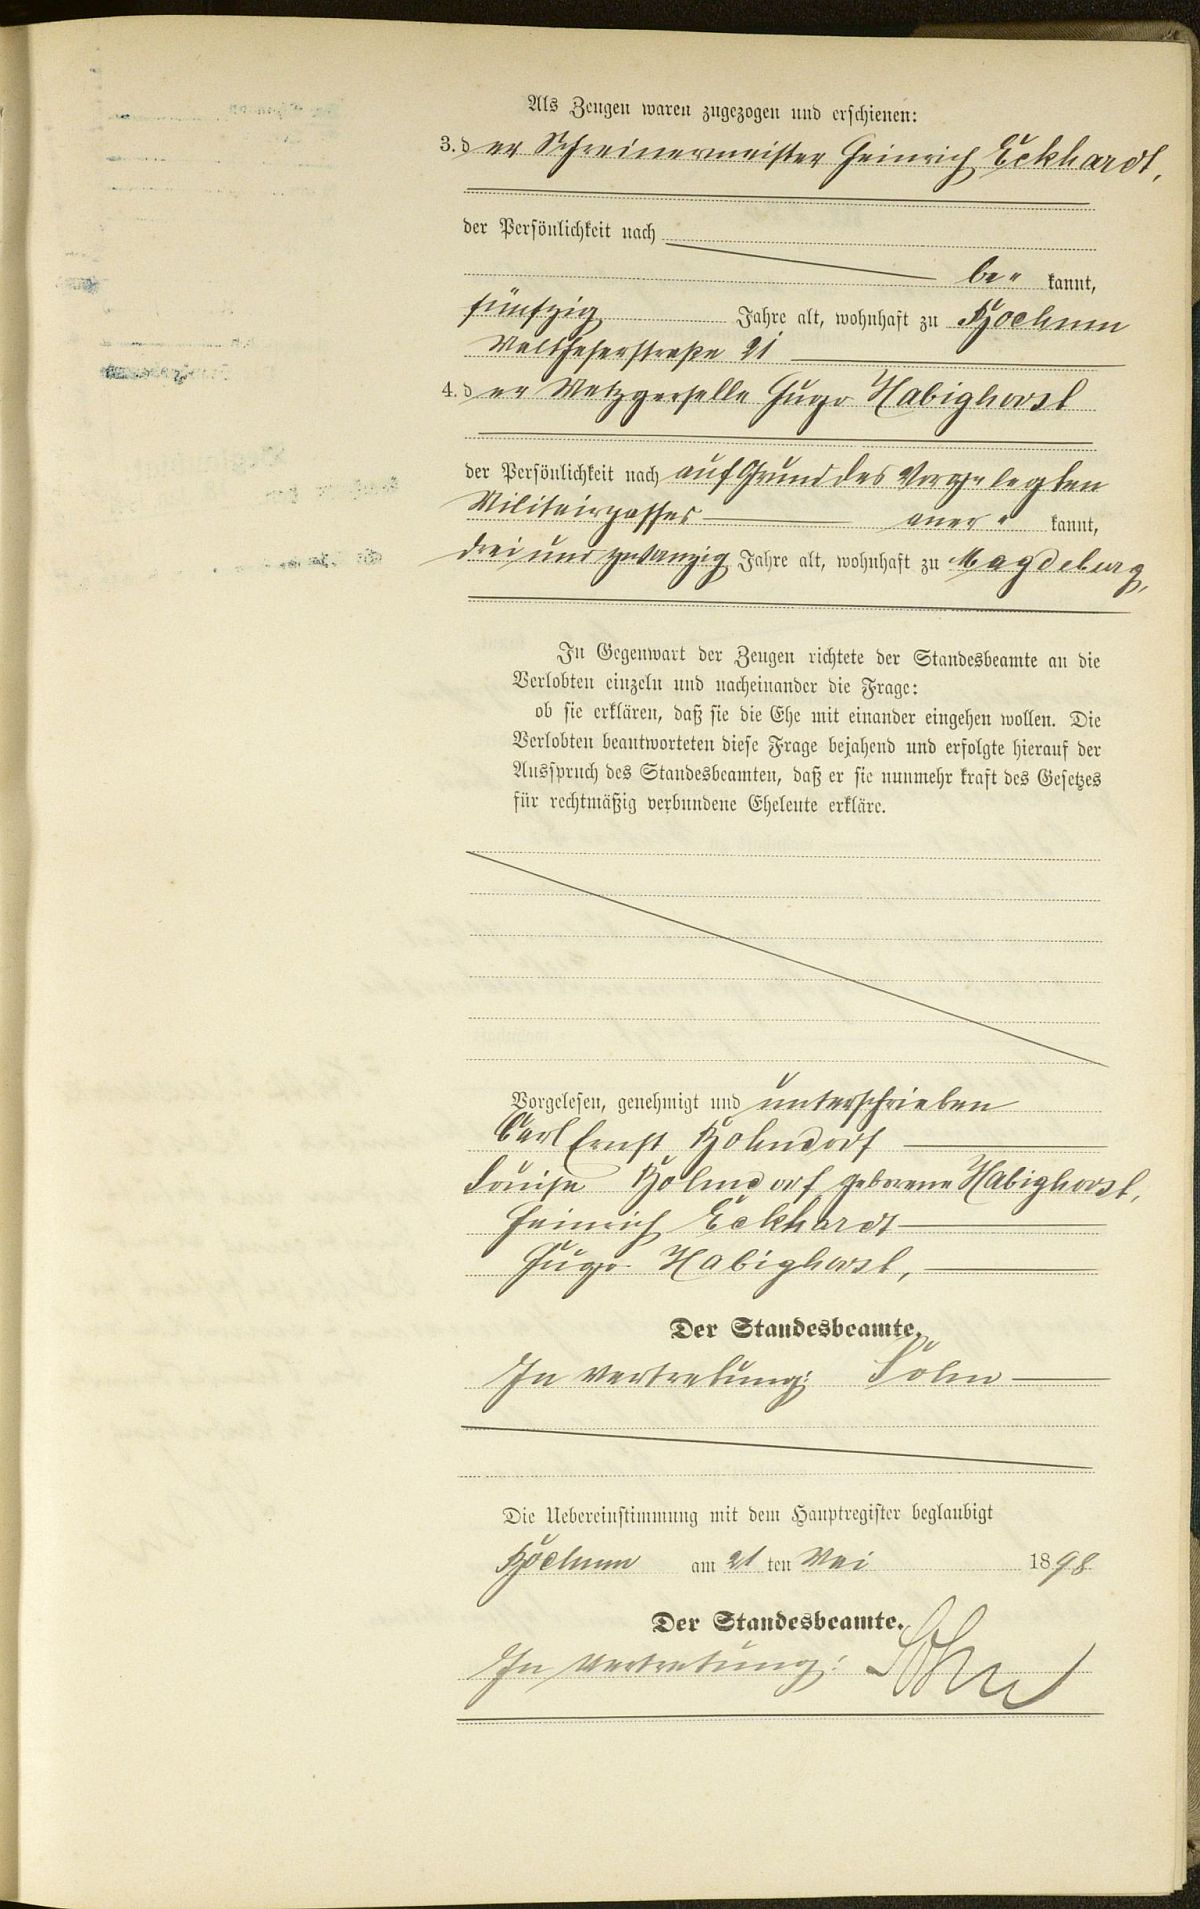 Als Zeugen waren zugezogen und erschienen:
3. der Schreinermeister Heinrich Eckhardt,
der Persönlichkeit nach
be" kannt,
fünfzig Jahre alt, wohnhaft zu Bochum
21
4. der Metzgerselle Hugo Habighorst
der Persönlichkeit nach auf Grund des vorgelegten
Militairpasses aner" kannt,
drei und zwanzig Jahre alt, wohnhaft zu Magdeburg,
In Gegenwart der Zeugen richtete der Standesbeamte an die
Verlobten einzeln und nacheinander die Frage:
ob sie erklären, daß sie die Ehe mit einander eingehen wollen. Die
Verlobten beantworteten diese Frage bejahend und erfolgte hierauf der
Ausspruch des Standesbeamten, daß er sie nunmehr kraft des Gesetzes
für rechtmäßig verbundene Eheleute erkläre.
Vorgelesen, genehmigt und unterschrieben
Carl Ernst Bohndorf
Louise Bohndorf geborene Habighorst,
Heinrich Eckhardt
Hugo Habighorst,
Der Standesbeamte.
In Vertretung:
Die Uebereinstimmung mit dem Hauptregister beglaubigt
Bochum am 21 ten Mai 1898
Der Standesbeamte.
In Vertretung: